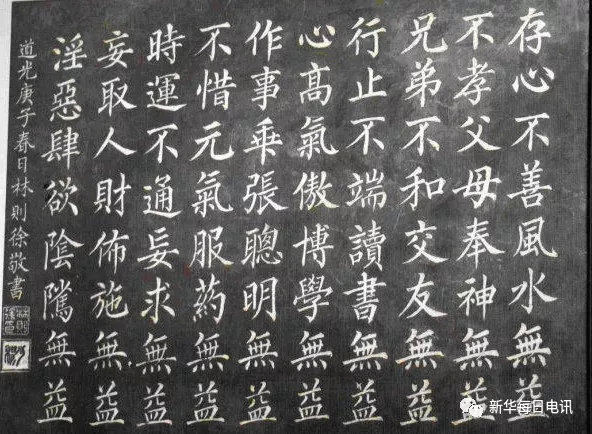 存心不善風水無益
不孝父母奉神無益
兄弟不和交友無益
行止不端讀書無益
心高氣傲博學無益
作事乖張聰明無益
不惜元氣服药無益
時運不通妄求無益
妄取人財佈施無益
淫惡肆欲陰騭無益
道光庚子春日林則徐敬書
新华每日电讯